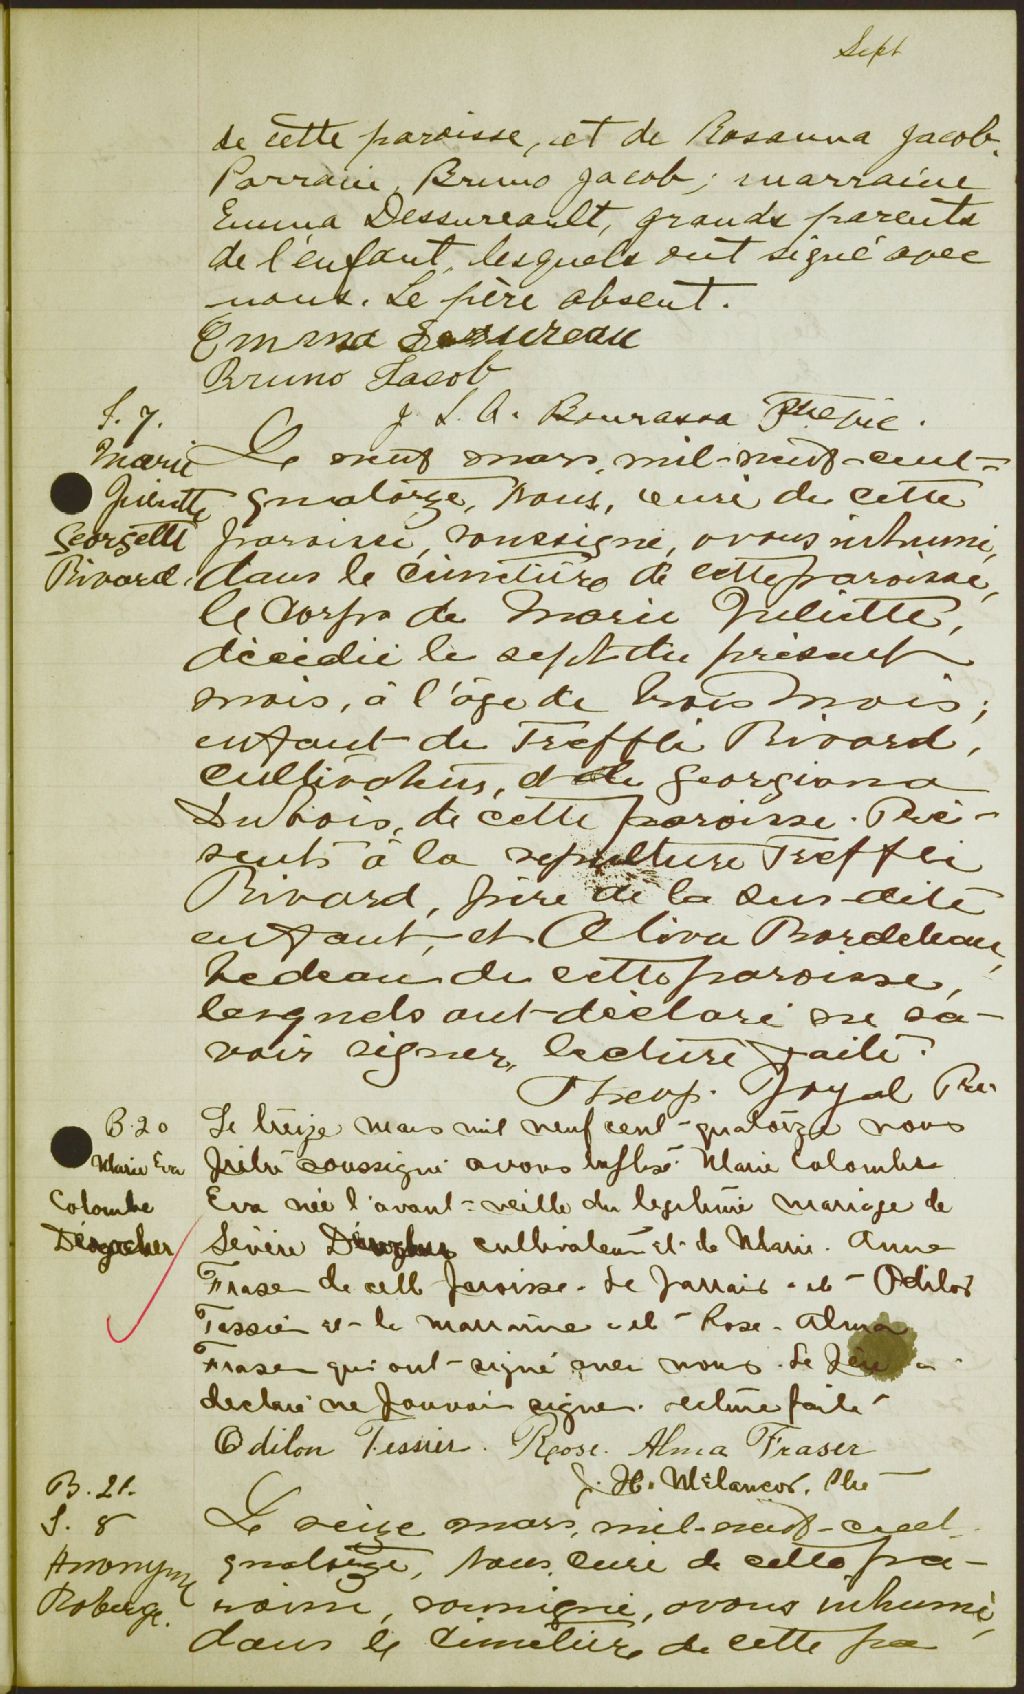 Sept
de cette paroisse, et de Rosanna Jacob.
Parrain, Bruno Jacob; marraine
Emma Dessureault, grands parents
de l'enfant, lesquels ont signé avec
nous. Le père absent.
Emma Dessureau
Bruno Jacob
J. L. A. Bourassa Ptre Vic.
S. 7.
Marie
Juliette
Georgette
Rivard.
Le neuf mars, mil-neuf-cent-
quatorze, Nous, curé de cette
paroisse, soussigné, avons inhumé,
dans le cimetière de cette paroisse,
le corps de Marie Juliette,
décédée le sept du présent
mois, à l'âge de trois mois;
enfant de Treffli Rivard,
cultivateur, et de Georgiana
Dubois, de cette paroisse. Pré-
sents à la sépulture Treffli
Rivard, père de la sus-dite
enfant, et Oliva Bordeleau,
bedeau de cette paroisse,
lesquels ont déclaré ne sa-
voir signer, lecture faite.
Theop. Joyal Ptre.
B. 20
Marie Eva
Colombe
Le treize mars mil neuf cent-quatorze nous
prêtre soussigné avons baptisé Marie Colombe
Eva née l'avant-veille du légitime mariage de
Sévère cultivateur et de Marie-Anne
Fraser de cette paroisse. Le parrain a été Odilon
Tessier et la marraine a été Rose-Alma
Fraser qui ont signé avec nous. Le père a
déclaré ne pouvoir signer. Lecture faite
Odilon Tessier. Rose. Alma Fraser
J. H. Mélançon, Ptre
B. 21.
S. 8
Anonyme
Roberge.
Le seize mars, mil-neuf-cent-
quatorze, Nous, curé de cette pa-
roisse, soussigné, avons inhumé,
dans le cimetière de cette pa